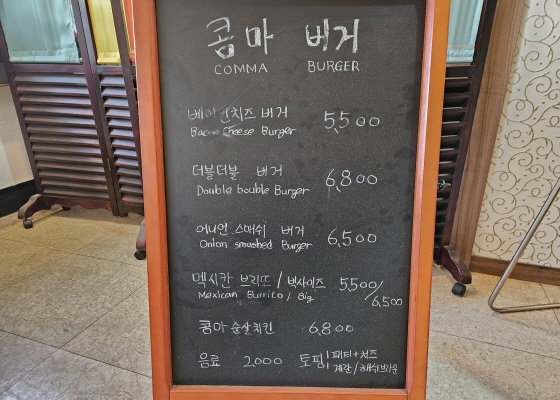 콤마 버거
COMMA BURGER
베이컨치즈 버거 5,500
Bacon Cheese Burger
더블더블 버거 6,800
Double bouble Burger
어니언 스매쉬 버거 6,500
Onion smashed Burger
멕시칸 브리또 / 빅사이즈 5,500/
Mexican Burrito / Big 6,500
콤마 순살치킨 6,800
음료 2,000 토핑 패티+치즈
계란/해쉬브라운